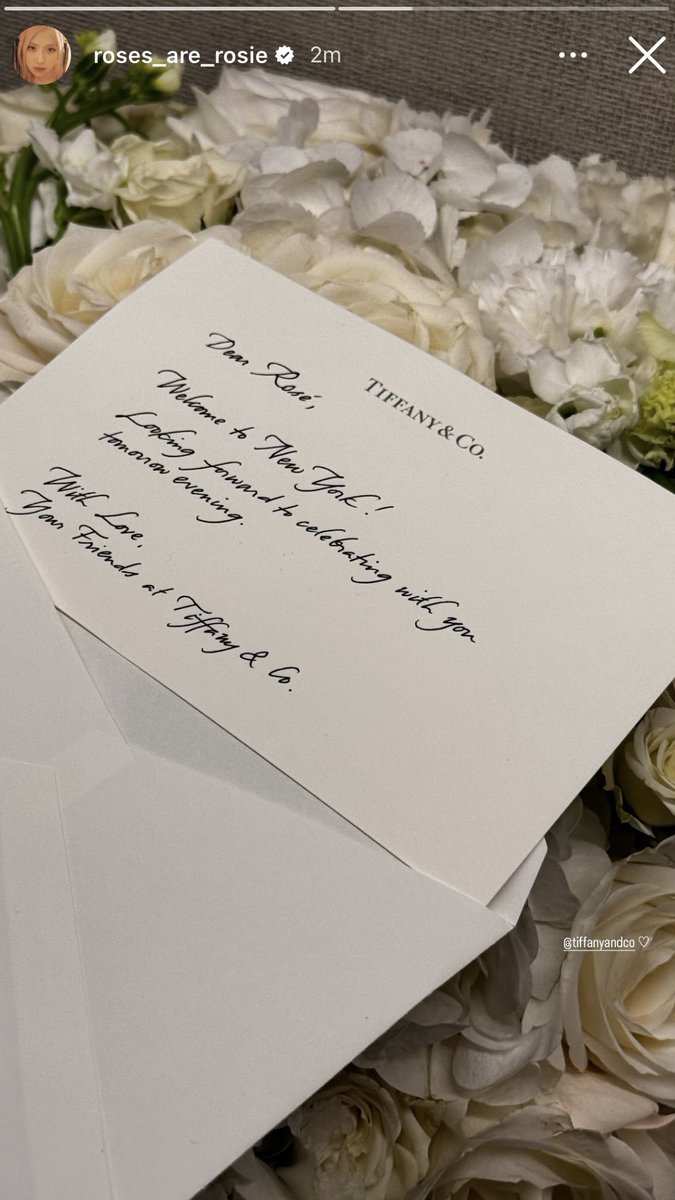 roses_are_rosie 2m
TIFFANY & CO.
Dear Rosé,
Welcome to New York!
Looking forward to celebrating with you
tomorrow evening.
With Love,
Your Friends at Tiffany & Co.
@tiffanyandco ♡